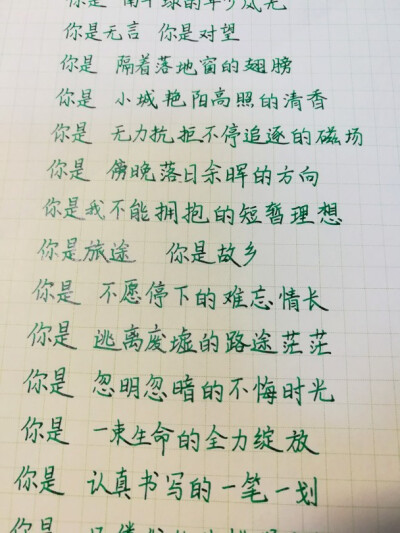 你是 南半球的
你是无言 你是对望
你是 隔着落地窗的翅膀
你是 小城艳阳高照的清香
你是 无力抗拒不停追逐的磁场
你是 傍晚落日余晖的方向
你是我不能拥抱的短暂理想
你是旅途 你是故乡
你是 不愿停下的难忘情长
你是 逃离废墟的路途茫茫
你是 忽明忽暗的不悔时光
你是 一束生命的全力绽放
你是 认真书写的一笔一划
你是